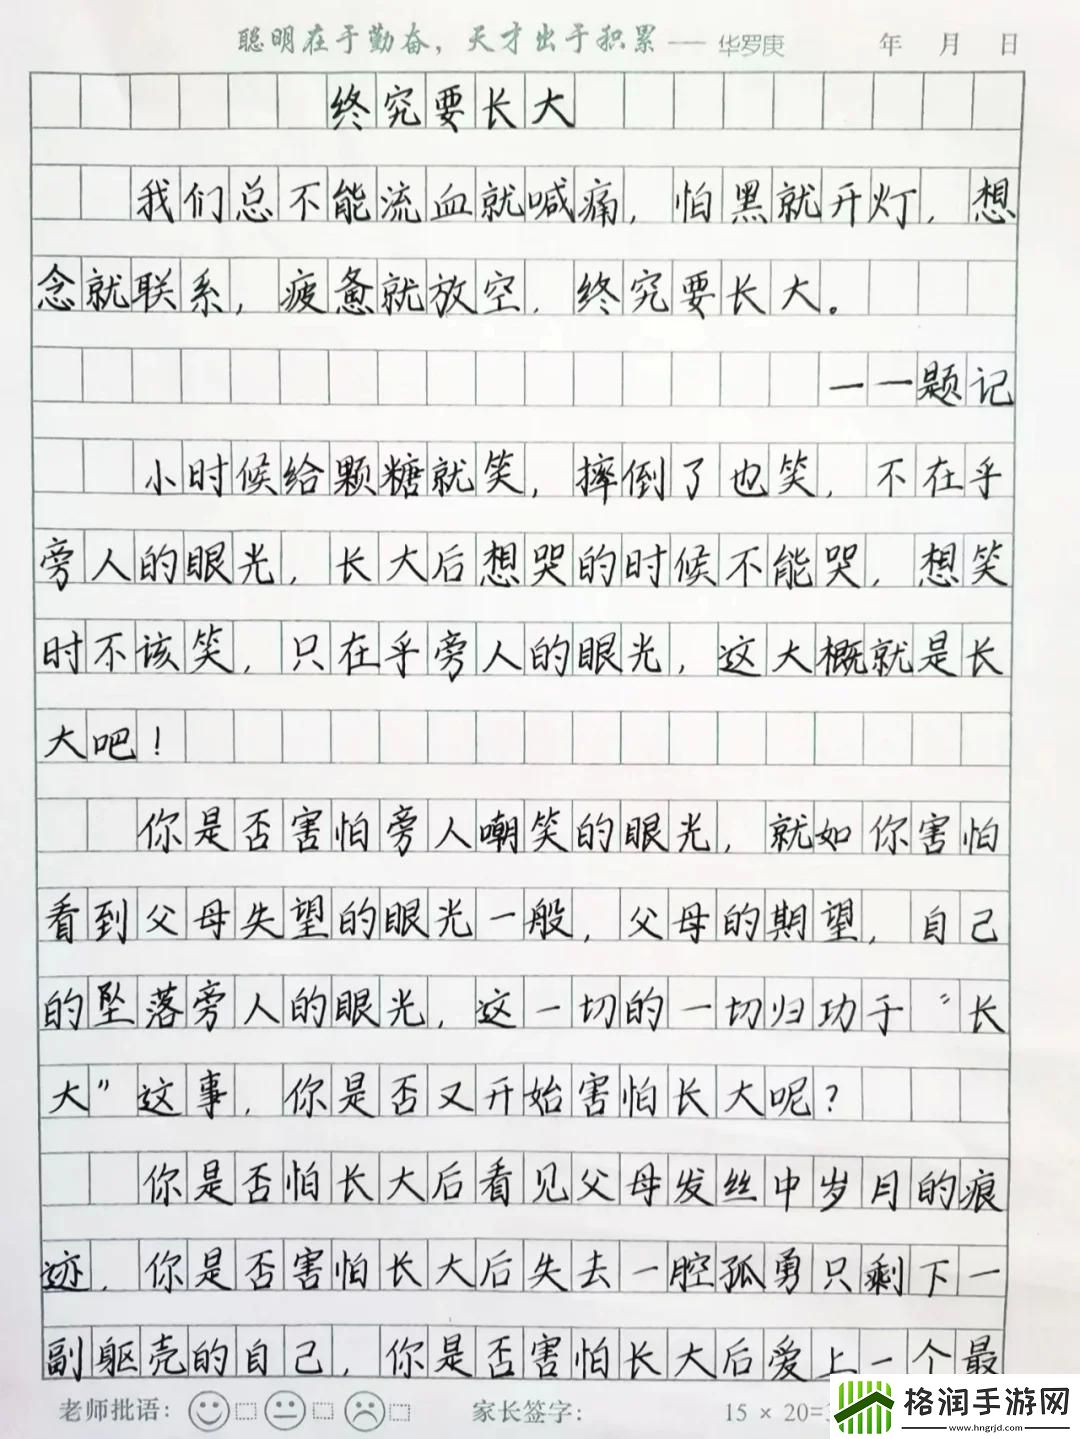 聪明在于勤奋，天才出于积累——华罗庚 年 月 日
终究要长大
我们总不能流血就喊痛，怕黑就开灯，想
念就联系，疲惫就放空，终究要长大。
——题记
小时候给颗糖就笑，摔倒了也笑，不在乎
旁人的眼光，长大后想哭的时候不能哭，想笑
时不该笑，只在乎旁人的眼光，这大概就是长
大吧！
你是否害怕旁人嘲笑的眼光，就如你害怕
看到父母失望的眼光一般，父母的期望，自己
的坠落旁人的眼光，这一切的一切归功于“长
大”这事，你是否又开始害怕长大呢？
你是否怕长大后看见父母发丝中岁月的痕
迹，你是否害怕长大后失去一腔孤勇只剩下一
副躯壳的自己，你是否害怕长大后爱上一个最
老师批语： 家长签字： 15 × 20=
格润手游网
www.hngrjd.com